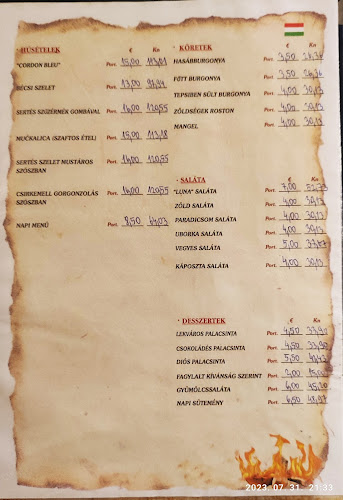 · HÚSÉTELEK € Kn
"CORDON BLEU" Port. 15,00 113,01
BÉCSI SZELET Port. 13,00
SERTÉS SZŰZÉRMÉK GOMBÁVAL Port. 16,00 120,55
MUČKALICA (SZAFTOS ÉTEL) Port. 15,00
SERTÉS SZELET MUSTÁROS SZÓSZBAN Port. 16,00 120,55
CSIRKEMELL GORGONZOLÁS SZÓSZBAN Port. 16,00 120,55
NAPI MENÜ Port. 8,50
· KÖRETEK € Kn
HASÁBBURGONYA Port. 3,50 26,34
FŐTT BURGONYA Port. 3,50 26,34
TEPSIBEN SÜLT BURGONYA Port. 4,00 30,13
ZÖLDSÉGEK ROSTON Port. 4,00 30,13
MANGEL Port. 4,00 30,13
· SALÁTA € Kn
"LUNA" SALÁTA Port. 7,00
ZÖLD SALÁTA Port. 4,00 30,13
PARADICSOM SALÁTA Port. 4,00 30,13
UBORKA SALÁTA Port. 4,00 30,13
VEGYES SALÁTA Port. 5,00 37,67
KÁPOSZTA SALÁTA Port. 4,00 30,13
· DESSZERTEK € Kn
LEKVÁROS PALACSINTA Port. 4,50 33,90
CSOKOLÁDÉS PALACSINTA Port. 4,50 33,90
DIÓS PALACSINTA Port. 5,50
FAGYLALT KÍVÁNSÁG SZERINT Port. 2,00
GYÜMÖLCSSALÁTA Port. 6,00
NAPI SÜTEMÉNY Port. 6,50 48,97
2023. 07. 31. 21:33